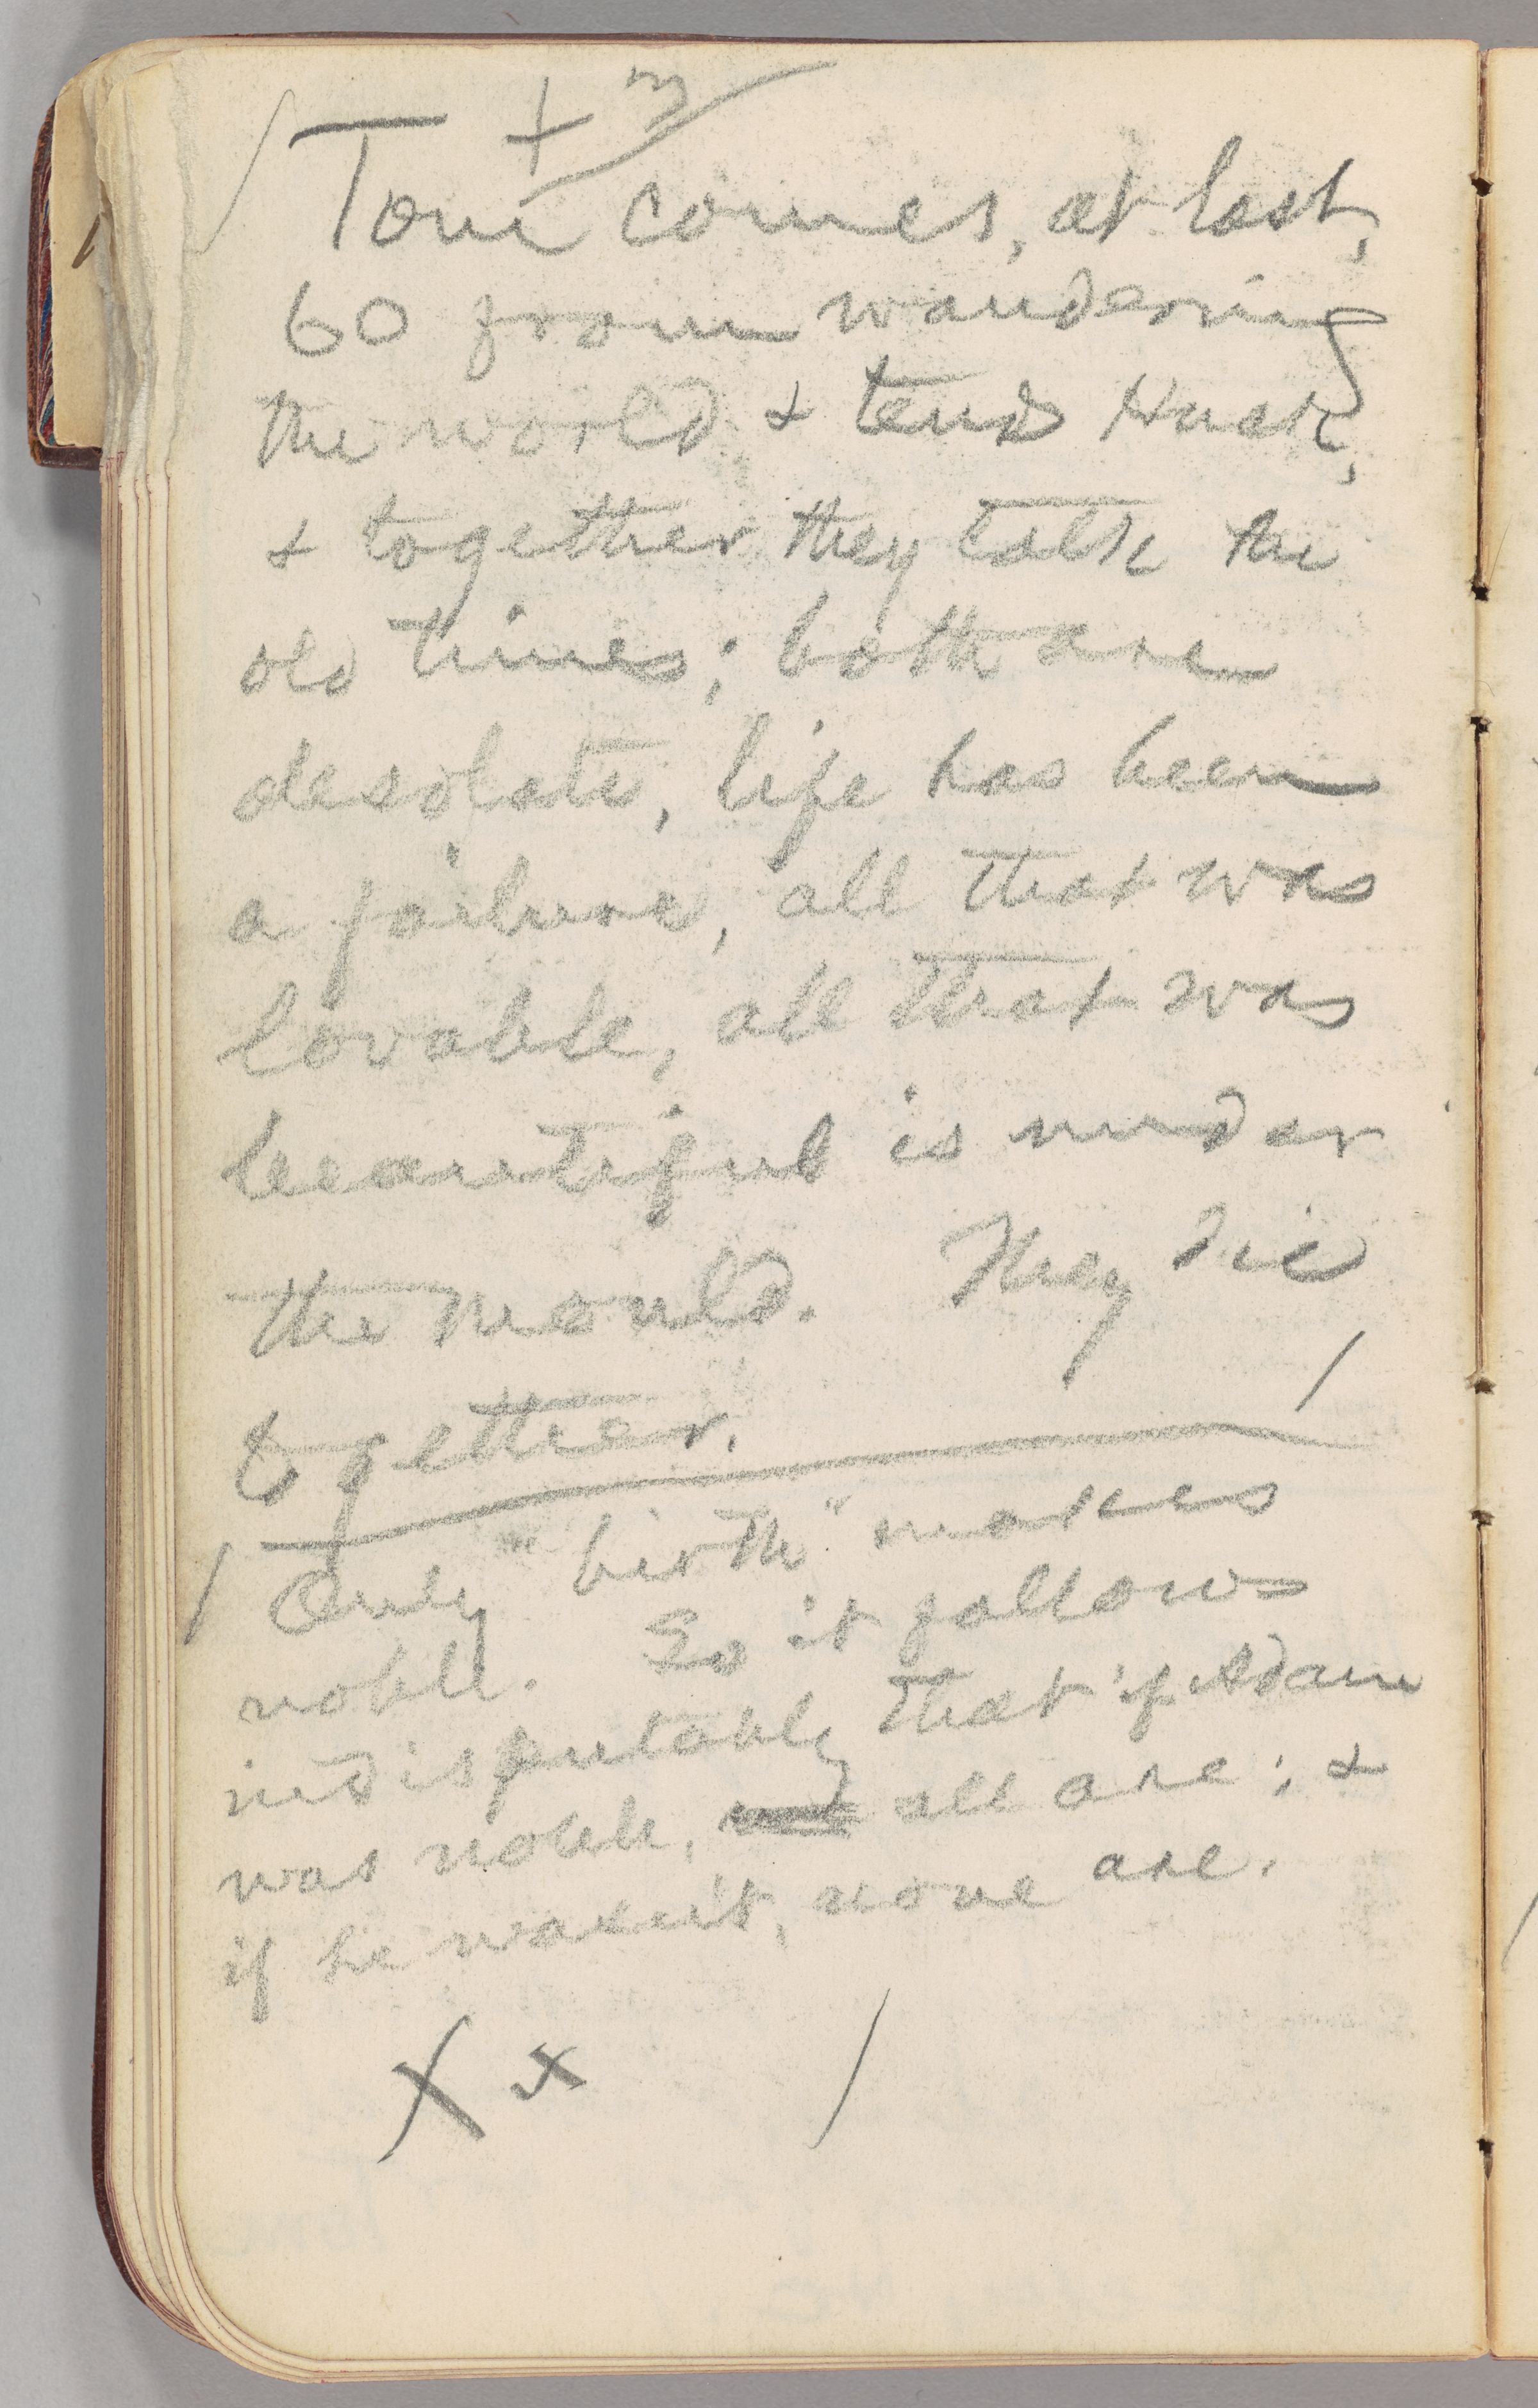 Tom comes, at last,
60 from wandering
the world & tends Huck,
& together they talk the
old times; both are
desolate, life has been
a failure, all that was
lovable, all that was
beautiful is under
the mould. They die
together.
Only "birth" makes
noble. So it follows
indisputably that if Adam
was noble, all are; &
if he wasn't, none are.
X x